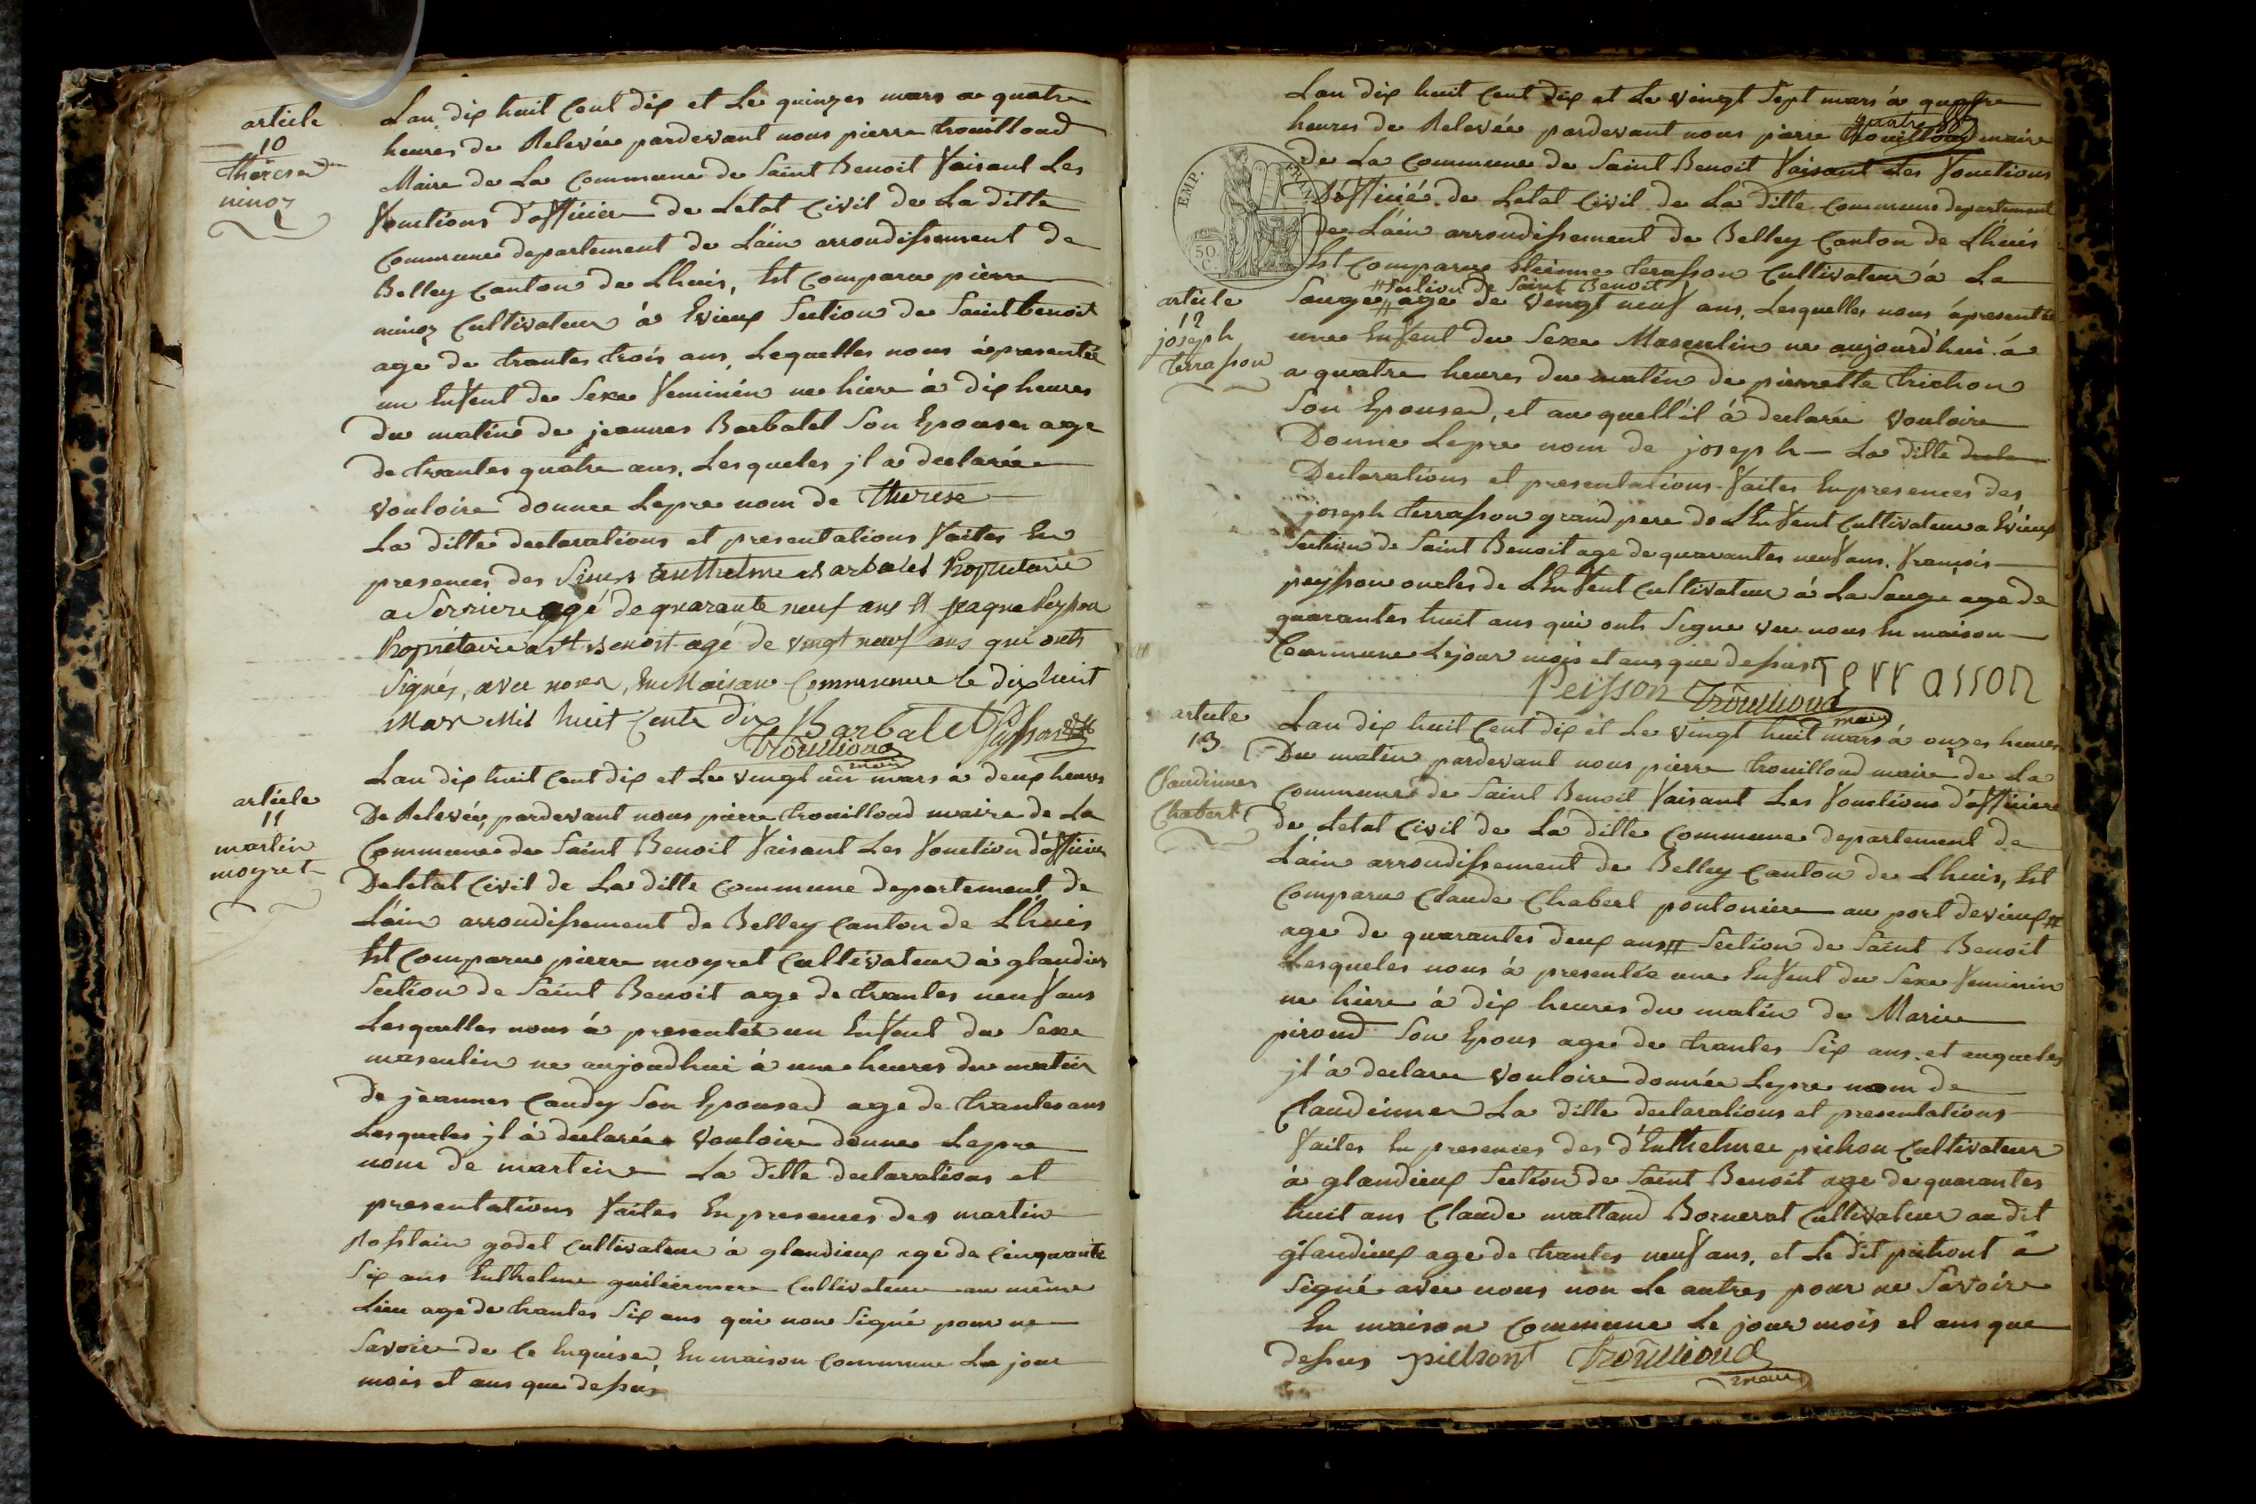 article
10
Therese
ninoz
Lan dix huit Cent dix et Le quinzes mars a quatre
heures de Relevée pardevant nous pierre trouilloud
Maire de La Commune de Saint Benoit faisant Les
fonctions d'officier de Letat Civil de La ditte
Commune departement de L'ain arrondissement de
Belley Canton de Lhuis, Est Comparu pierre
ninoz Cultivateur à Evieux Section de Saint benoit
age de trantes trois ans, Lequelles nous à presentée
un Enfent de Sexe feminin ne hiere à dix heures
du matin de jeannes Barbatel Son Epouse age
de trantes quatre ans, Lesqueles jl a declarée
vouloire donnee Lepre nom de Therese
La ditte declarations et presentations faites En
presences des Sieurs anthelme Barbatel Propriétaire
a Serriere agé de quarante neuf ans et jaque Peysson
Propriétaire a St Benoit agé de vingt neuf ans qui onts
Signés, avec nous, En Maison Commune le dix huit
Mars Mil huit Cents dix Barbatel Peysson
Trouilloud
maire
article
11
martin
moyret
Lan dix huit Cent dix et Le vingt un mars à deux heures
De Relevée, pardevant nous pierre trouilloud maire de La
Commune de Saint Benoit faisant Les fonction d'officier
De Letat Civil de La ditte Commune departement de
L'ain arrondissement de Belley Canton de Lhuis
Est Comparu pierre moyret Cultivateur à glandieu
Section de Saint Benoit age de trantes neuf ans
Lesquelles nous à presentée un Enfent du Sexe
masculin ne aujoudhui à une heures du matin
de jeannes Candy Son Epouse age de trantes ans
Lesqueles jl à declarée vouloire donnee Lepre
nom de martin La ditte declarations et
presentations faites En presences des martin
Rosslain godet Cultivateur à glandieux age de Cinquante
Six ans Enthelme Cultivateur au même
Lieu age de trantes Six ans qui non Signé pour ne
Savoire de Ce Enquise, En maison Commune Le jour
mois et ans que dessus
EMP.
50
article
12
joseph
Terrasson
Lan dix huit Cent dix et Le vingt Sept mars à quatre
quatre
heures de Relevée pardevant nous pierre trouilloud maire
de La Commune de Saint Benoit faisant Les fonctions
D'officié de Letat Civil de La ditte Commune departement
de L'ain arrondissement de Belley Canton de Lhuis
Est Comparu Etienne terasson Cultivateur à La
# Section de Saint Benoit
Sauge # age de vingt neuf ans, Lesquelles nous à presentée
une Enfent du Sexe Masculin ne aujourd'hui à
a quatre heures du matin de pierrette trichon
Son Epouse, et au quell'il à declarée vouloire
Donnee Lepre nom de joseph La ditte decla
Declarations et presentations faites En presences des
joseph terrasson grand pere de LEnfent Cultivateur a Evieux
Section de Saint Benoit age de quarantes neuf ans, francois
peysson oncles de LEnfent Cultivateur à La Sauge age de
quarantes huit ans qui onts Signe vec nous En maison
Commune Le jour mois et ans que dessus Terrasson
Peisson Trouilloud
maire
article
13
Claudinnes
Chabert
Lan dix huit Cent dix et Le vingt huit mars à onzes heures
Du matin pardevant nous pierre trouilloud maire de La
Commune de Saint Benoit faisant Les fonctions d'officiere
de Letat Civil de La ditte Commune departement de
L'ain arrondissement de Belley Canton de Lhuis, Est
Comparu Claude Chabert pontoniere au port devieux #
age de quarantes deux ans # Section de Saint Benoit
Lesqueles nous à presentée une Enfent du Sexe feminin
ne hiere à dix heures du matin de Marie
piroud Son Epous age de trantes Six ans, et auqueles
jl à declaree vouloire donnée Lepre nom de
Claudinnes La ditte declarations et presentations
faites En presences des d'Enthelme pichon Cultivateur
à glandieux Section de Saint Benoit age de quarantes
huit ans Claude mattand Bornerat Cultivateur au dit
glandieux age de trantes neuf ans, et Le dit à
Signé avec nous non Le autres pour ne Savoire
En maison Commune Le jour mois et ans que
dessus Trouilloud
maire